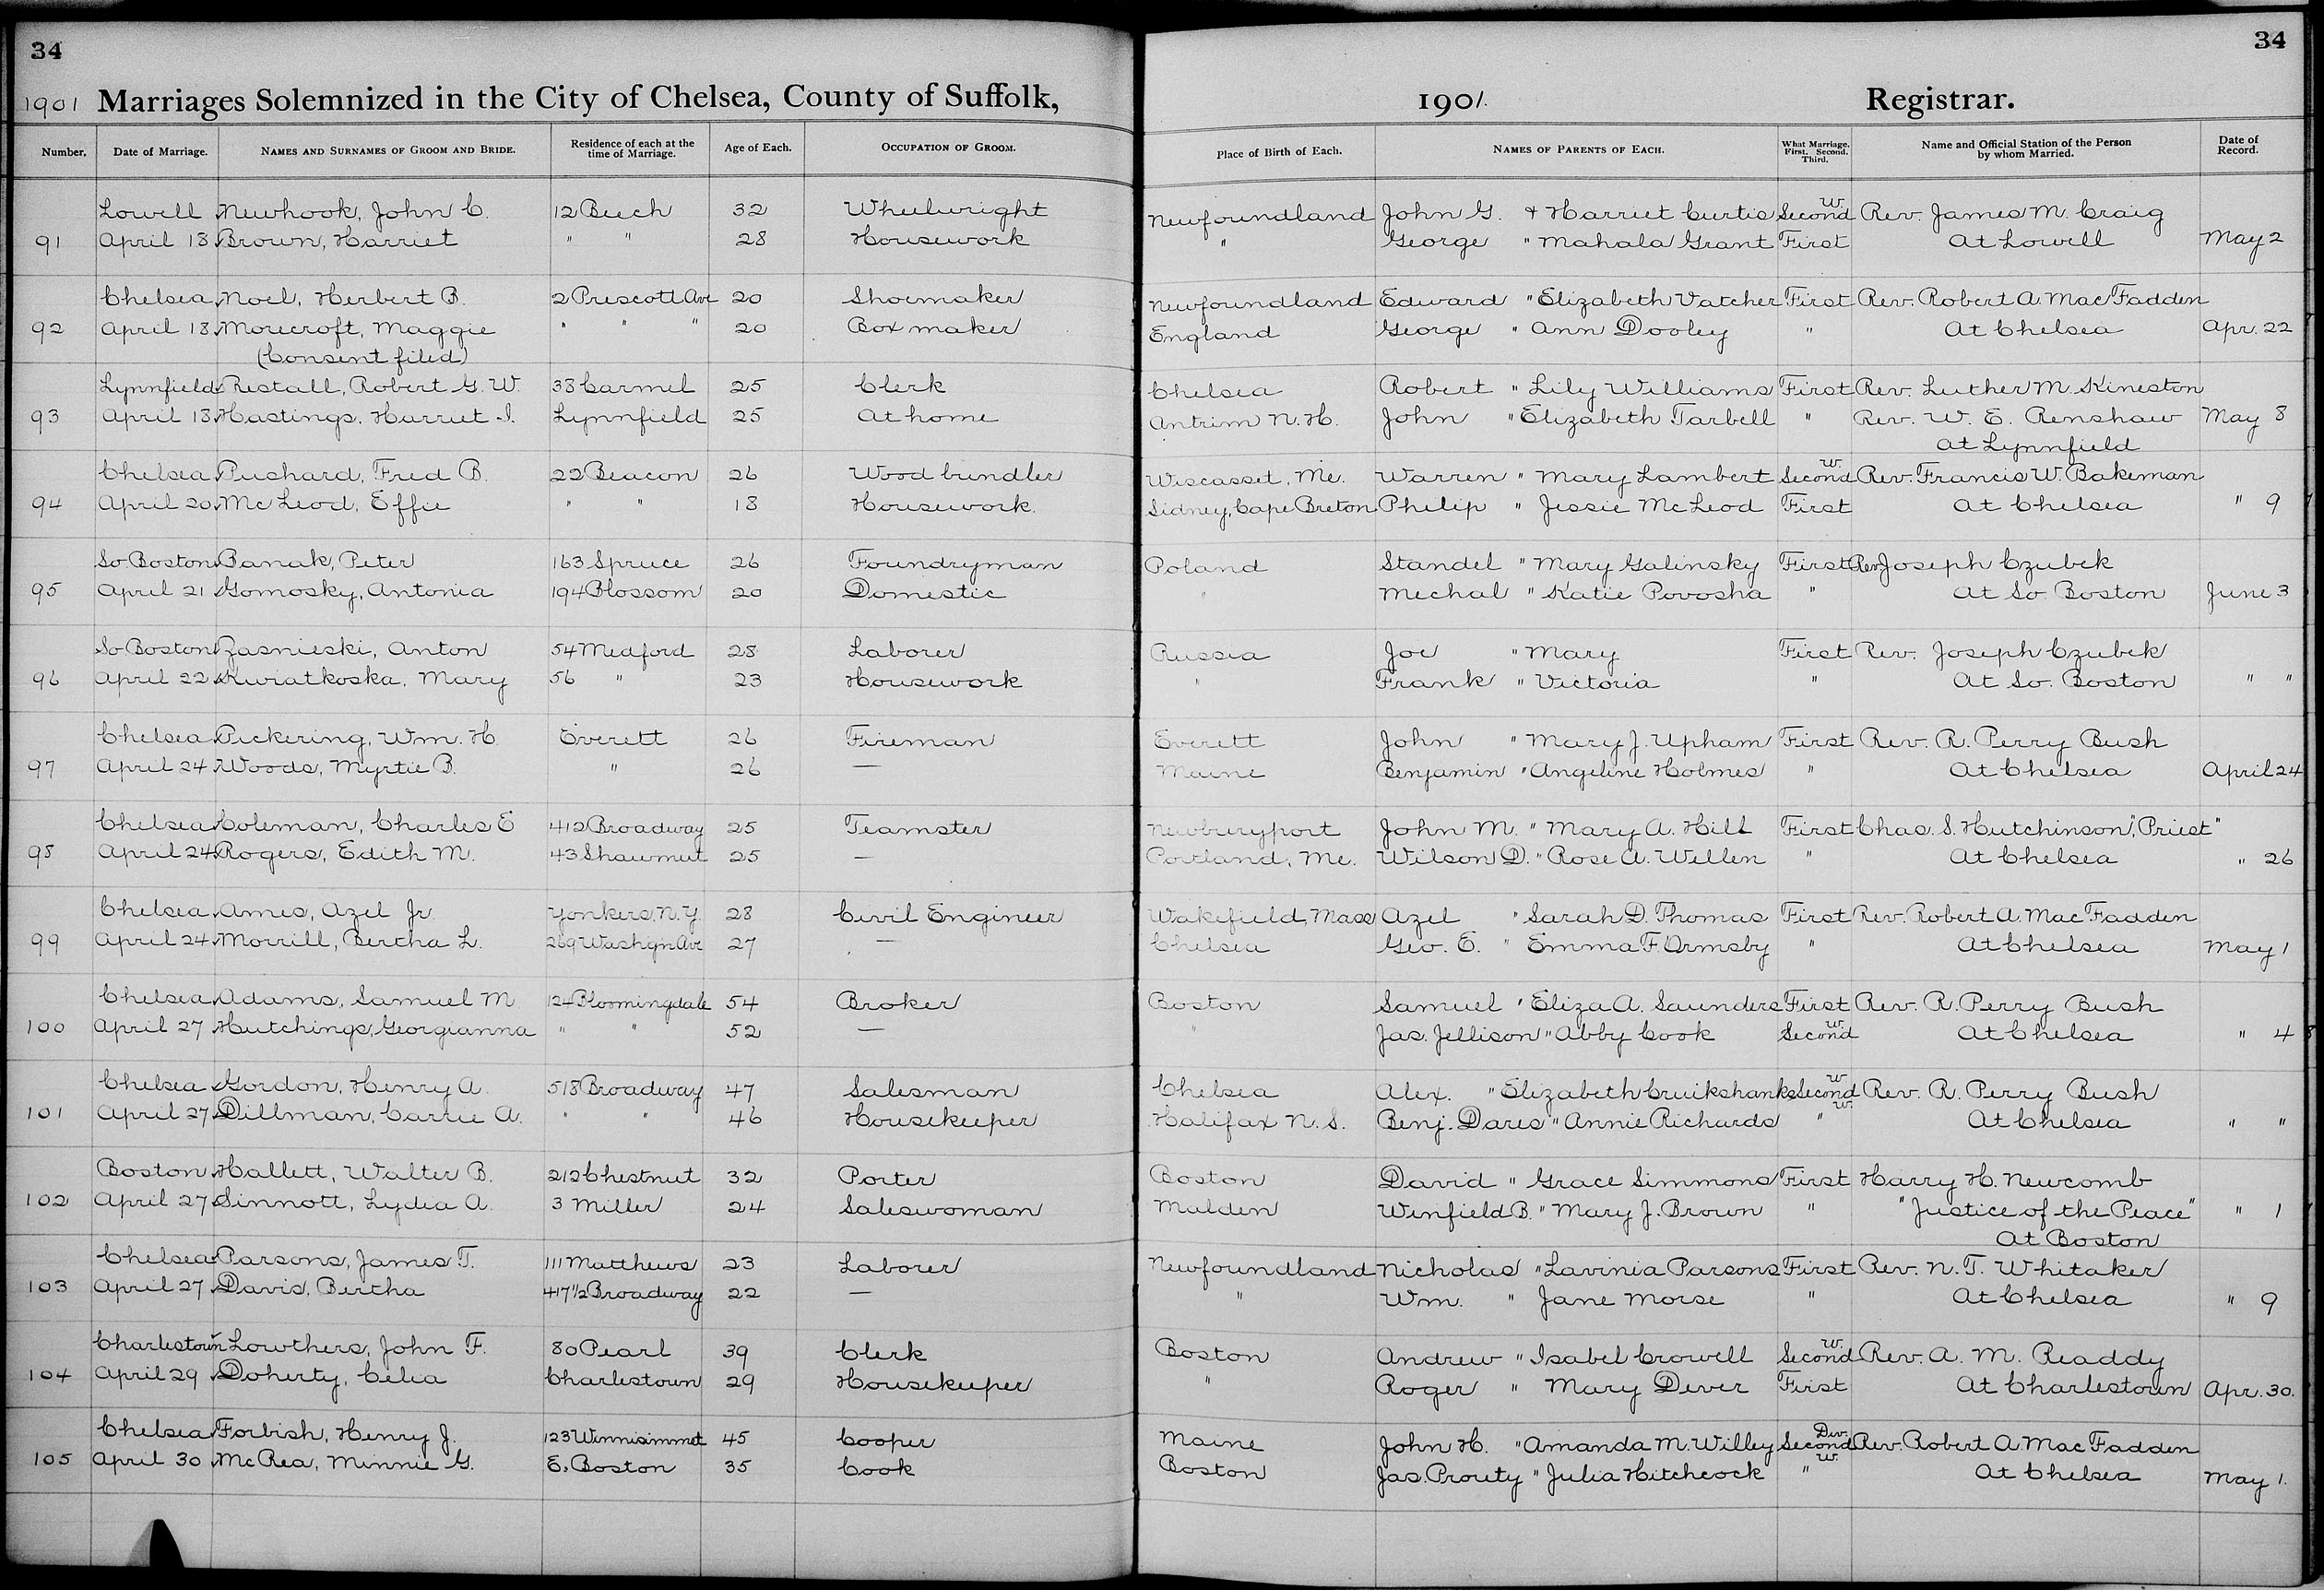 34
34
1901 Marriages Solemnized in the City of Chelsea, County of Suffolk, 1901. Registrar.
Number. Date of Marriage. Names and Surnames of Groom and Bride. Residence of each at the time of Marriage. Age of Each. Occupation of Groom. Place of Birth of Each. Names of Parents of Each. What Marriage. First. Second. Third. Name and Official Station of the Person by whom Married. Date of Record.
Lowell Newhook, John C. 12 Beech 32 Wheelwright Newfoundland John G. & Harriet Curtis Second W. Rev. James M. Craig
91 April 18 Brown, Harriet " " 28 Housework " George " Mahala Grant First At Lowell May 2
Chelsea Noel, Herbert B. 2 Prescott Ave 20 Shoemaker Newfoundland Edward " Elizabeth Vatcher First Rev. Robert A. MacFadden
92 April 18 Morecroft, Maggie " " " 20 Box maker England George " Ann Dooley " At Chelsea Apr. 22
(Consent filed)
Lynnfield Restall, Robert G. W. 38 Carmel 25 Clerk Chelsea Robert " Lily Williams First Rev. Luther M. Kineston
93 April 18 Hastings, Harriet I. Lynnfield 25 At home Antrim N. H. John " Elizabeth Tarbell " Rev. W. E. Renshaw May 8
At Lynnfield
Chelsea Pushard, Fred B. 22 Beacon 26 Wood bundler Wiscasset, Me. Warren " Mary Lambert Second W. Rev. Francis W. Bakeman
94 April 20 McLeod, Effie " " 18 Housework. Sidney, Cape Breton Philip " Jessie McLeod First At Chelsea " 9
So. Boston Banak, Peter 163 Spruce 26 Foundryman Poland Standel " Mary Galinsky First Rev. Joseph Czubek
95 April 21 Gomosky, Antonia 194 Blossom 20 Domestic " Mechal " Katie Povosha " At So. Boston June 3
So Boston Zasnieski, Anton 54 Medford 28 Laborer Russia Joe " Mary First Rev. Joseph Czubek
96 April 22 Kwiatkoska, Mary 56 " 23 Housework " Frank " Victoria " At So. Boston " "
Chelsea Pickering, Wm. H. Everett 26 Fireman Everett John " Mary J. Upham First Rev. R. Perry Bush
97 April 24 Woods, Myrtie B. " 26 — Maine Benjamin " Angeline Holmes " At Chelsea April 24
Chelsea Coleman, Charles E 412 Broadway 25 Teamster Newburyport John M. " Mary A. Hill First Chas. S. Hutchinson, "Priest"
98 April 24 Rogers, Edith M. 43 Shawmut 25 — Portland, Me. Wilson D. " Rose A. Wellen " At Chelsea " 26
Chelsea Ames, Azel Jr. Yonkers, N.Y. 28 Civil Engineer Wakefield, Mass Azel " Sarah D. Thomas First Rev. Robert A. MacFadden
99 April 24 Morrill, Bertha L. 269 Washgn Ave 27 — Chelsea Geo. E. " Emma F. Ormsby " At Chelsea May 1
Chelsea Adams, Samuel M. 124 Bloomingdale 54 Broker Boston Samuel " Eliza A. Saunders First Rev. R. Perry Bush
100 April 27 Hutchings, Georgianna " " 52 — " Jas. Jellison " Abby Cook Second W. At Chelsea " 4
Chelsea Gordon, Henry A. 518 Broadway 47 Salesman Chelsea Alex. " Elizabeth Cruikshanks Second W. Rev. R. Perry Bush
101 April 27 Dillman, Carrie A. " " 46 Housekeeper Halifax N. S. Benj. Dares " Annie Richards " W. At Chelsea " "
Boston Hallett, Walter B. 212 Chestnut 32 Porter Boston David " Grace Simmons First Harry H. Newcomb
102 April 27 Sinnott, Lydia A. 3 Miller 24 Saleswoman Malden Winfield B. " Mary J. Brown " "Justice of the Peace" " 1
At Boston
Chelsea Parsons, James T. 111 Matthews 23 Laborer Newfoundland Nicholas " Lavinia Parsons First Rev. N. T. Whitaker
103 April 27 Davis, Bertha 417 1/2 Broadway 22 — " Wm. " Jane Morse " At Chelsea " 9
Charlestown Lowthers, John F. 80 Pearl 39 Clerk Boston Andrew " Isabel Crowell Second W. Rev. A. M. Readdy
104 April 29 Doherty, Celia Charlestown 29 Housekeeper " Roger " Mary Dever First At Charlestown Apr. 30.
Chelsea Forbish, Henry J. 123 Winnisimmet 45 Cooper Maine John H. " Amanda M. Willey Second Div. Rev. Robert A. MacFadden
105 April 30 McRea, Minnie G. E. Boston 35 Cook Boston Jas. Prouty " Julia Hitchcock " W. At Chelsea May 1.